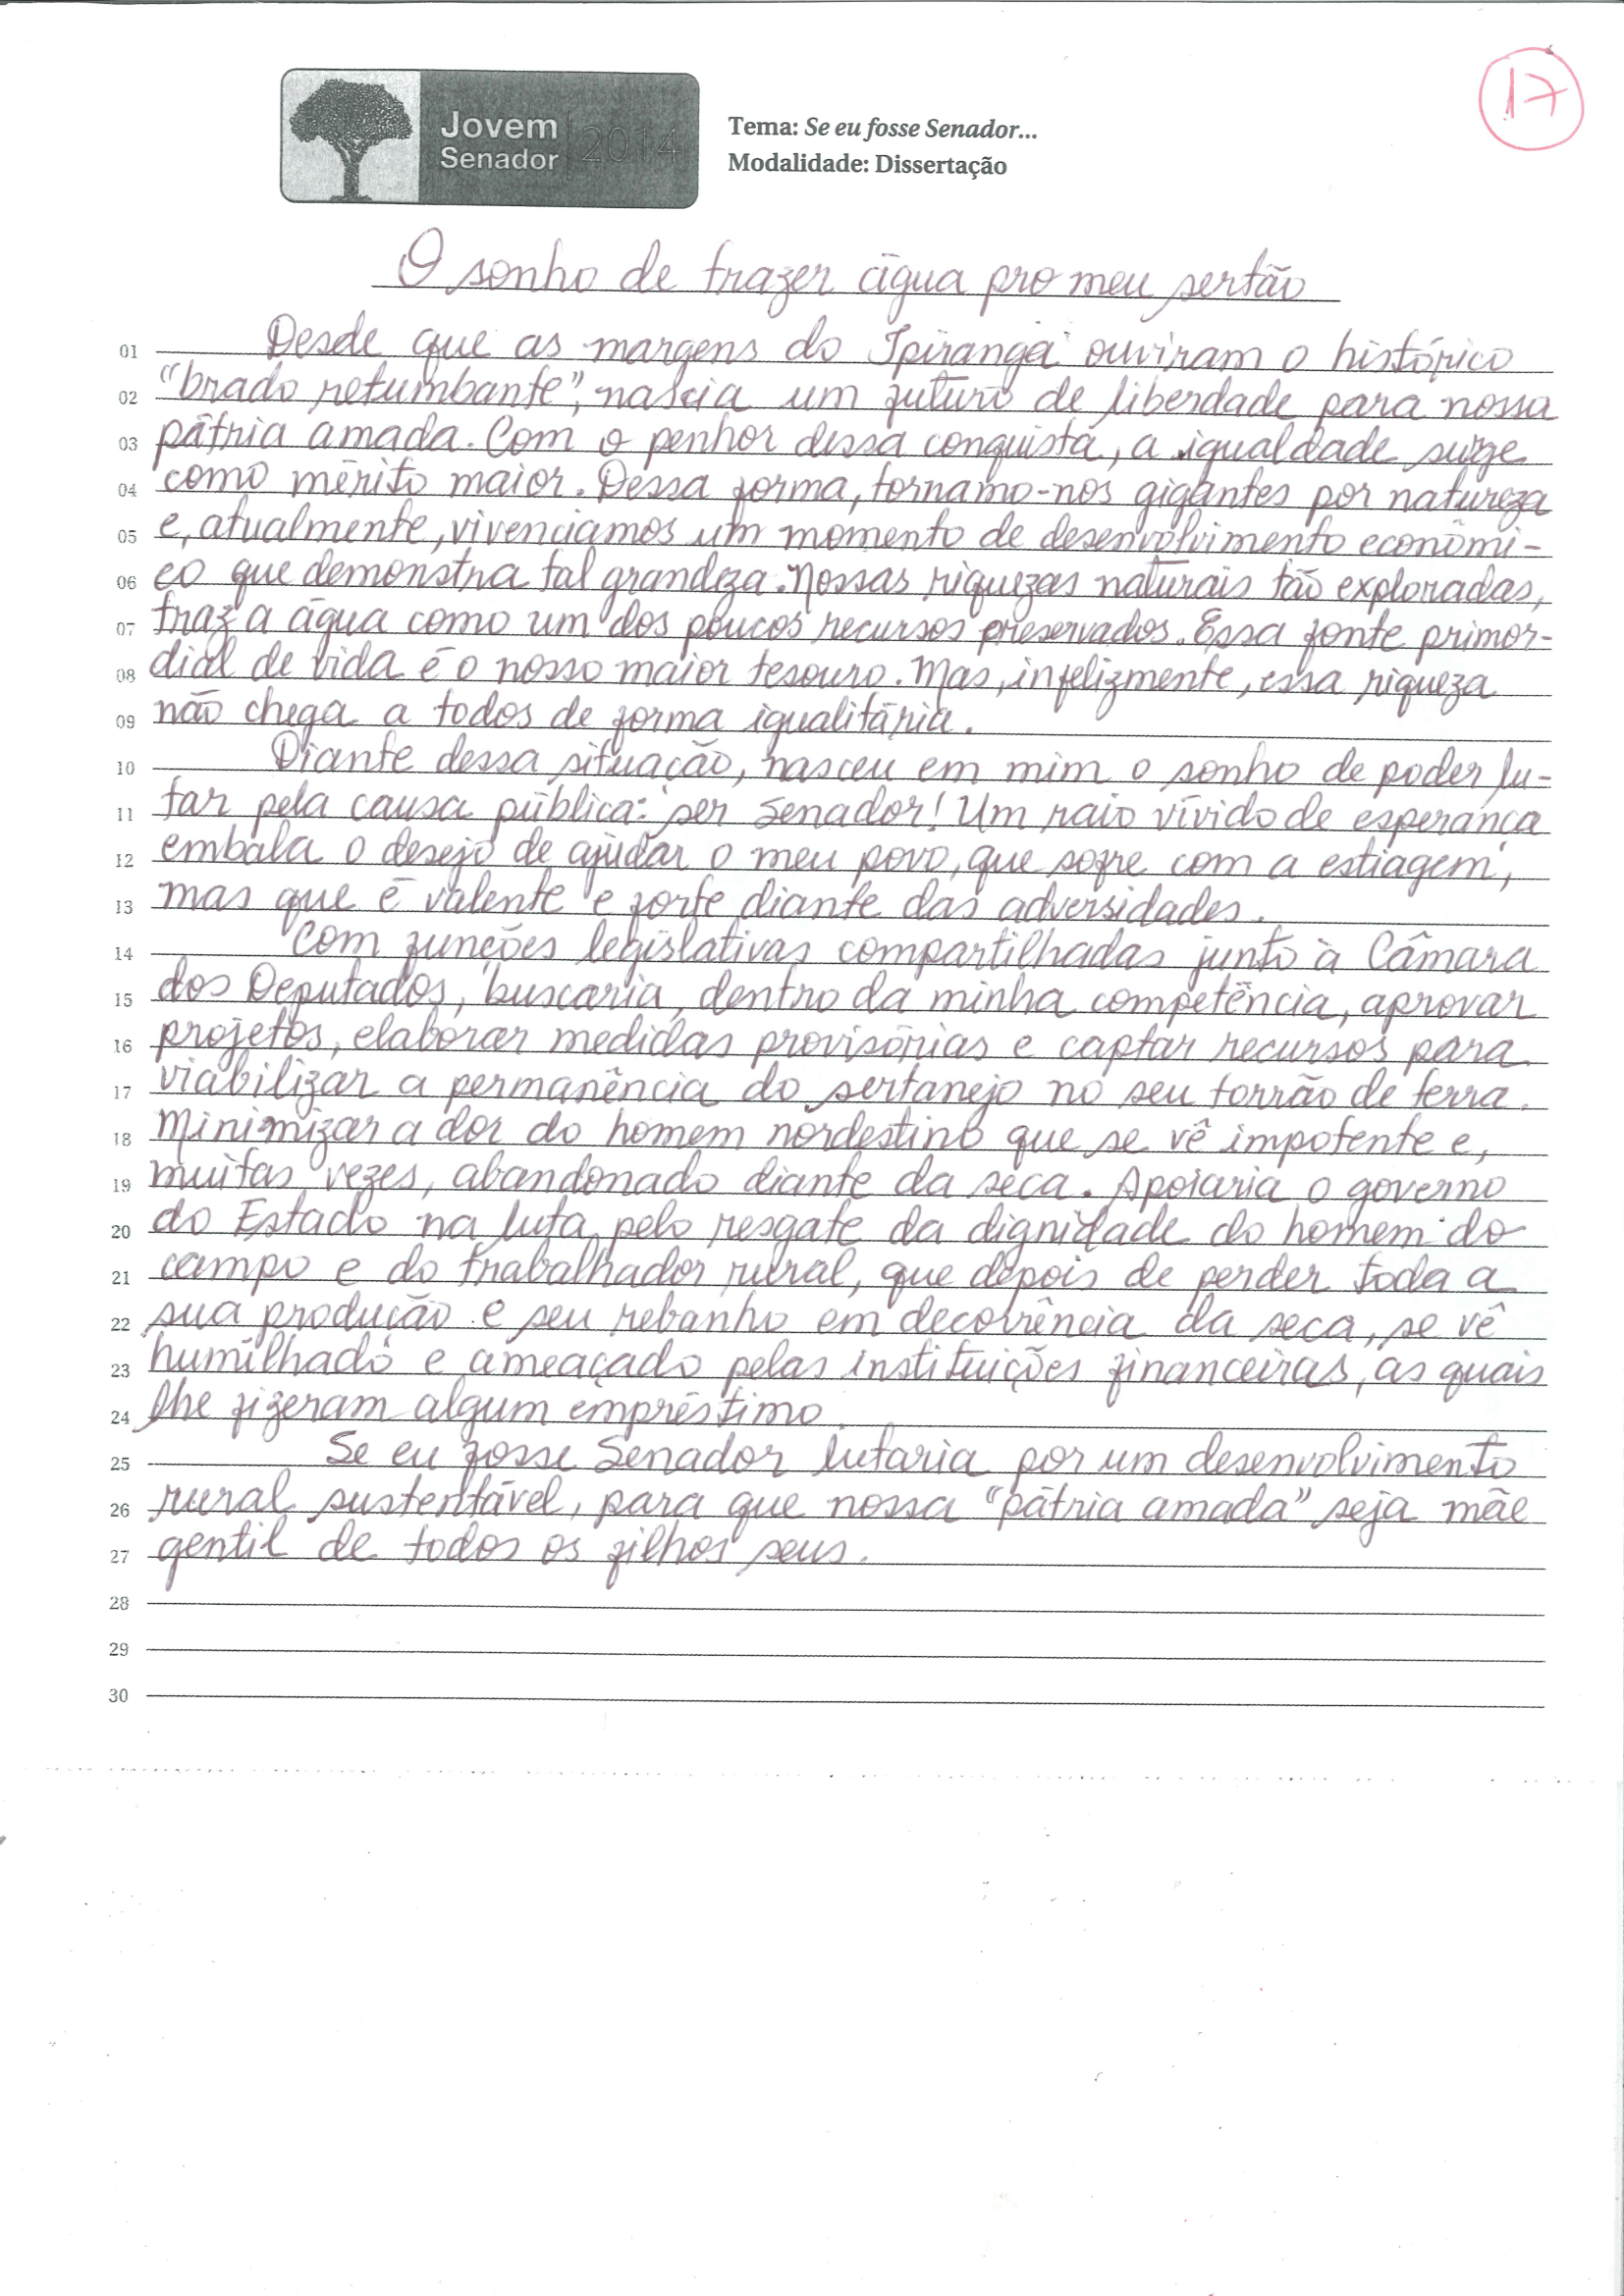 17
Jovem
Senador 2014
Tema: Se eu fosse Senador...
Modalidade: Dissertação
O sonho de trazer água pro meu sertão
01 Desde que as margens do Ipiranga ouviram o histórico
02 "brado retumbante", nascia um futuro de liberdade para nossa
03 pátria amada. Com o penhor dessa conquista, a igualdade surge
04 como mérito maior. Dessa forma, tornamo-nos gigantes por natureza
05 e, atualmente, vivenciamos um momento de desenvolvimento econômi-
06 co que demonstra tal grandeza. Nossas riquezas naturais tão exploradas,
07 traz a água como um dos poucos recursos preservados. Essa fonte primor-
08 dial de vida é o nosso maior tesouro. Mas, infelizmente, essa riqueza
09 não chega a todos de forma igualitária.
10 Diante dessa situação, nasceu em mim o sonho de poder lu-
11 tar pela causa pública: ser Senador! Um raio vívido de esperança
12 embala o desejo de ajudar o meu povo, que sofre com a estiagem,
13 mas que é valente e forte diante das adversidades.
14 Com funções legislativas compartilhadas junto à Câmara
15 dos Deputados, buscaria, dentro da minha competência, aprovar
16 projetos, elaborar medidas provisórias e captar recursos para
17 viabilizar a permanência do sertanejo no seu torrão de terra.
18 Minimizar a dor do homem nordestino que se vê impotente e,
19 muitas vezes, abandonado diante da seca. Apoiaria o governo
20 do Estado na luta pelo resgate da dignidade do homem do
21 campo e do trabalhador rural, que depois de perder toda a
22 sua produção e seu rebanho em decorrência da seca, se vê
23 humilhado e ameaçado pelas instituições financeiras, as quais
24 lhe fizeram algum empréstimo.
25 Se eu fosse Senador lutaria por um desenvolvimento
26 rural sustentável, para que nossa "pátria amada" seja mãe
27 gentil de todos os filhos seus.
28
29
30